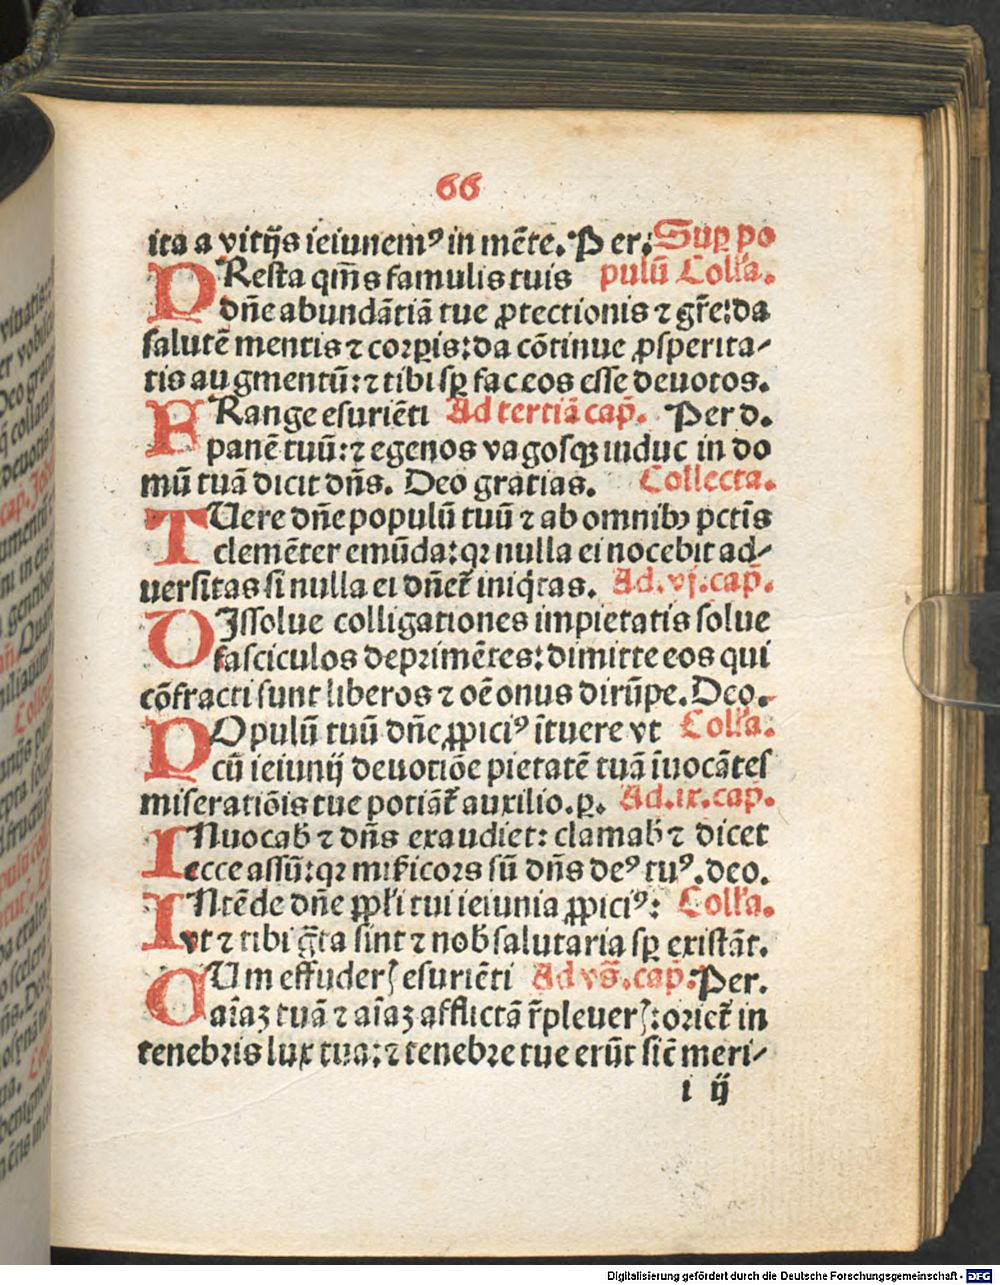 66
ita a vitijs ieiunemꝰ in mẽte. Per: Sup̱ po
PResta qm̃s famulis tuis pulũ Coll'a.
dñe abundãtiã tue ꝓtectionis ⁊ gr̃e: da
salutẽ mentis ⁊ corꝑis: da cõtinue ꝓsperita-
tis augmentũ: ⁊ tibi sꝑ fac eos esse deuotos.
FRange esuriẽti Ad tertiã cap̃. Per d.
panẽ tuũ: ⁊ egenos vagosqꝫ induc in do
mũ tuã dicit dñs. Deo gratias. Collecta.
TUere dñe populũ tuũ ⁊ ab omnibꝫ pctĩs
clemẽter emũda: qꝛ nulla ei nocebit ad-
uersitas si nulla ei dñet᷑ iniq̃tas. Ad. vj. cap̃.
DIssolue colligationes impietatis solue
fasciculos deprimẽtes: dimitte eos qui
cõfracti sunt liberos ⁊ oẽ onus dirũpe. Deo.
POpulũ tuũ dñe ꝓpiciꝰ ĩtuere vt Coll'a.
cũ ieiunij deuotiõe pietatẽ tuã ĩuocãtes
miseratiõis tue potiãt᷑ auxilio. ꝑ. Ad. ix. cap̃.
INuocab̾ ⁊ dñs exaudiet: clamab̾ ⁊ dicet
ecce assũ: qꝛ mīicors sũ dñs deꝰ tuꝰ. deo.
INtẽde dñe ꝓpl'i tui ieiunia ꝓpiciꝰ: Coll'a.
vt ⁊ tibi g̃ta sint ⁊ nob̾ salutaria sꝑ existãt.
CUm effuderꝭ esuriẽti Ad vs̃. cap̃. Per.
aĩaꝫ tuã ⁊ aĩaꝫ afflictã r̃pleuerꝭ: oriet᷑ in
tenebris lux tua: ⁊ tenebre tue erũt sic̃ meri-
i ij
Digitalisierung gefördert durch die Deutsche Forschungsgemeinschaft - DFG